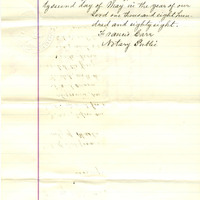 tysecond day of May in the year of our
Lord one thousand eight hun
dred and eighty eight.
Francis Carr
Notary Public